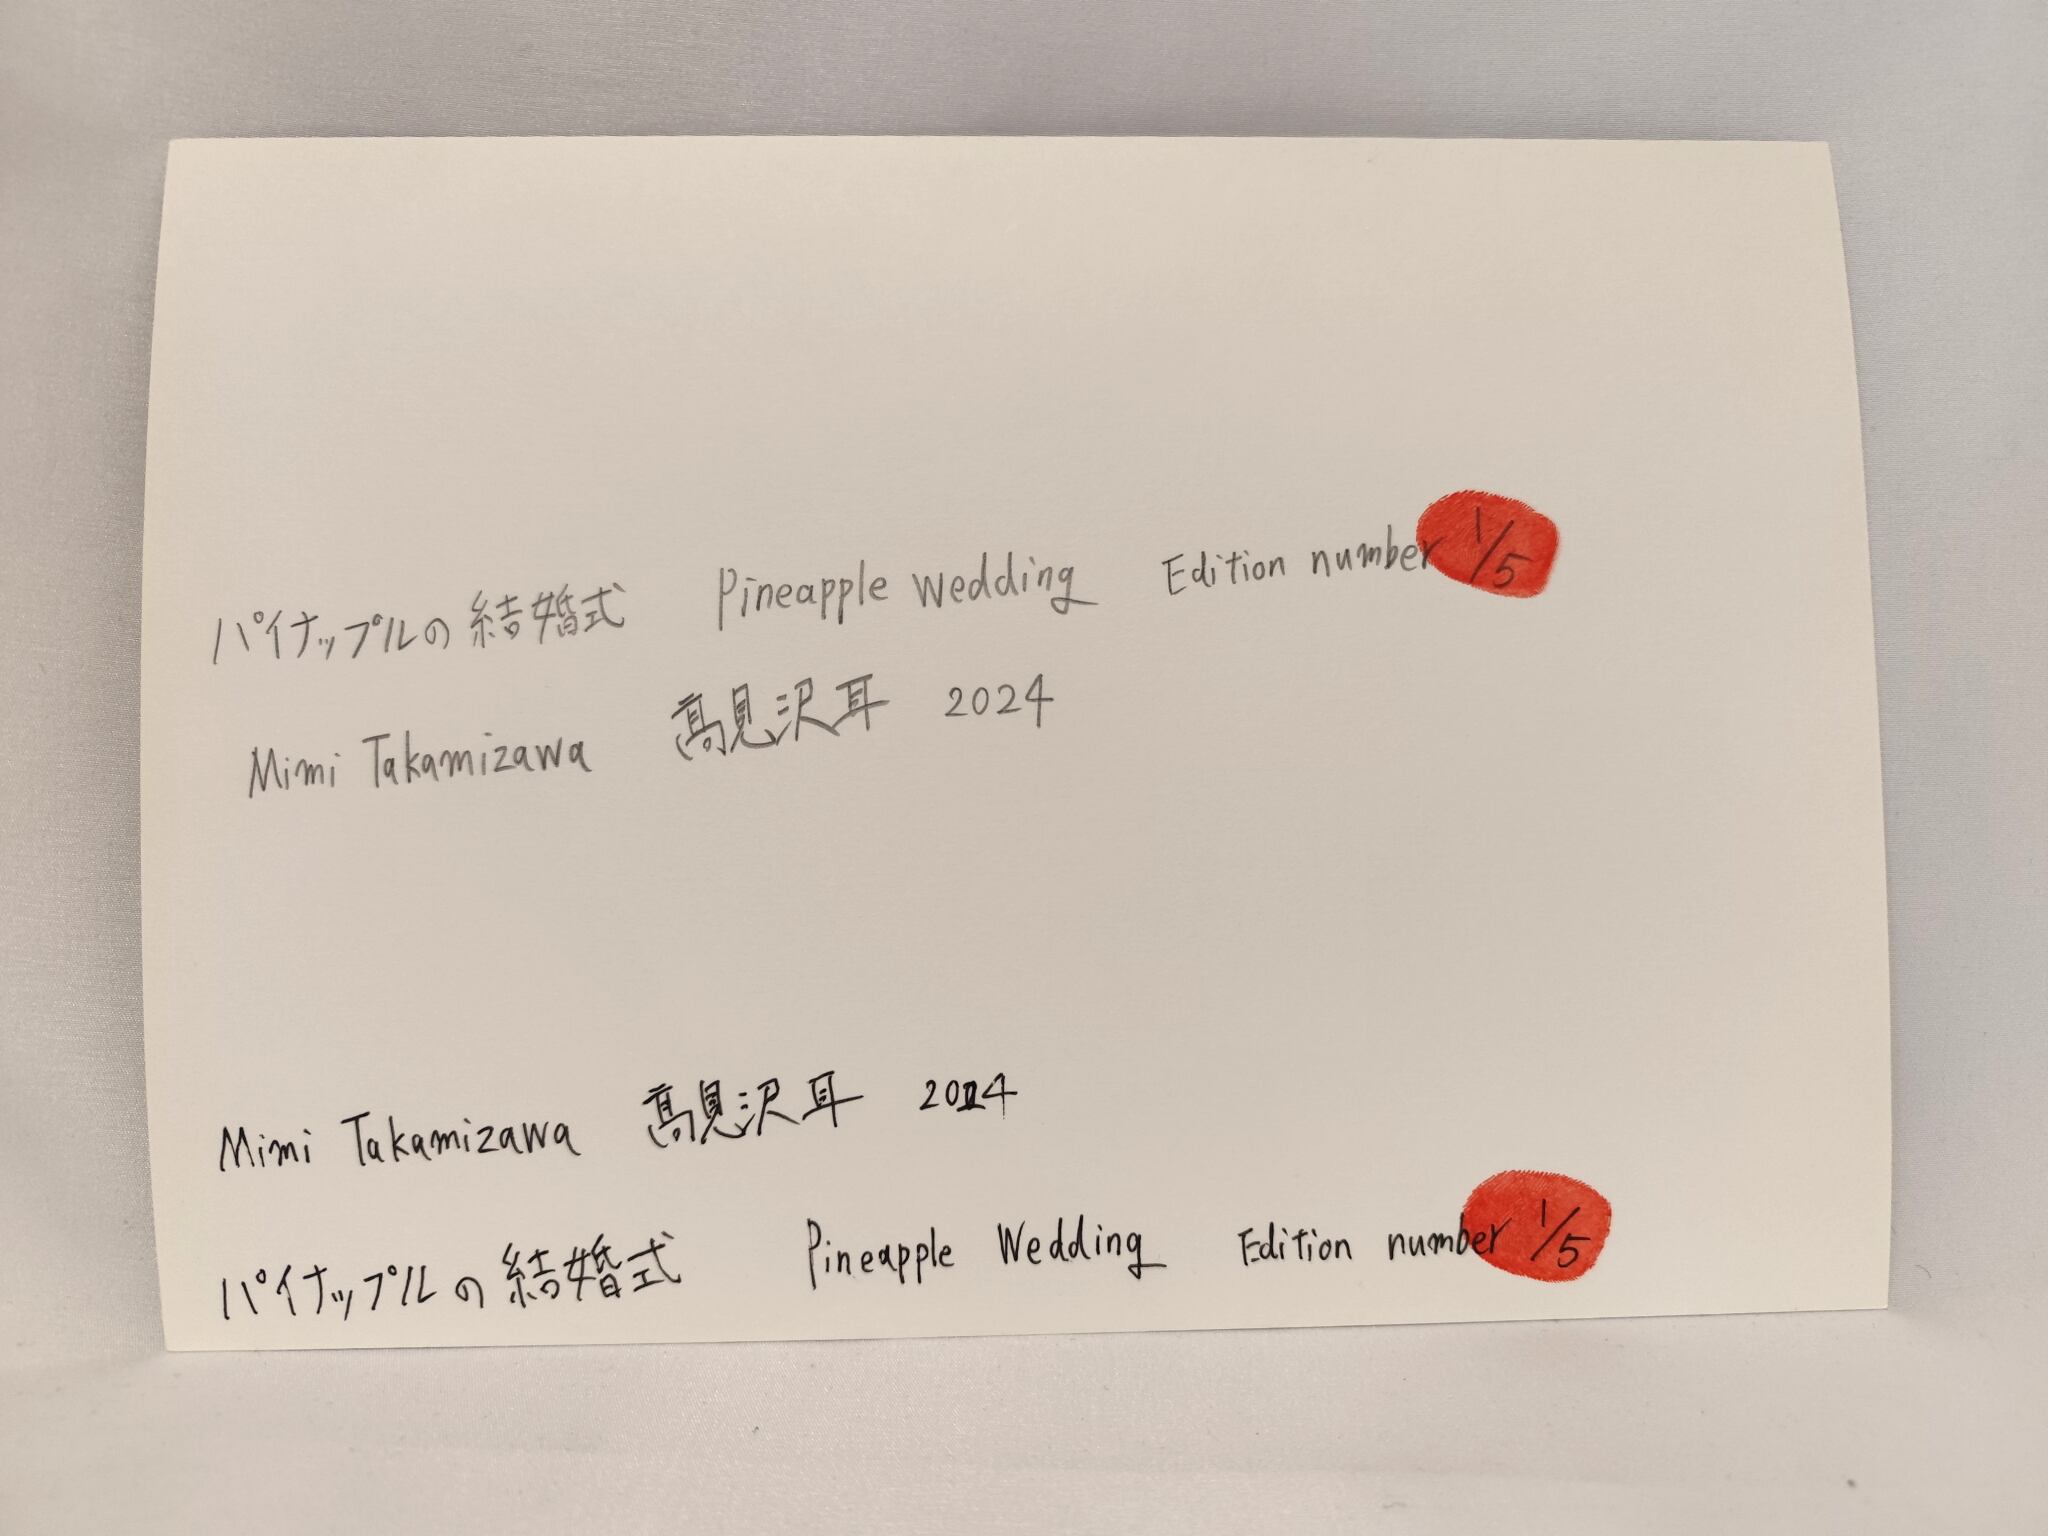 パイナップルの結婚式 Pineapple Wedding Edition number 1/5
Mimi Takamizawa 高見沢耳 2024
Mimi Takamizawa 高見沢耳 2024
パイナップルの結婚式 Pineapple Wedding Edition number 1/5